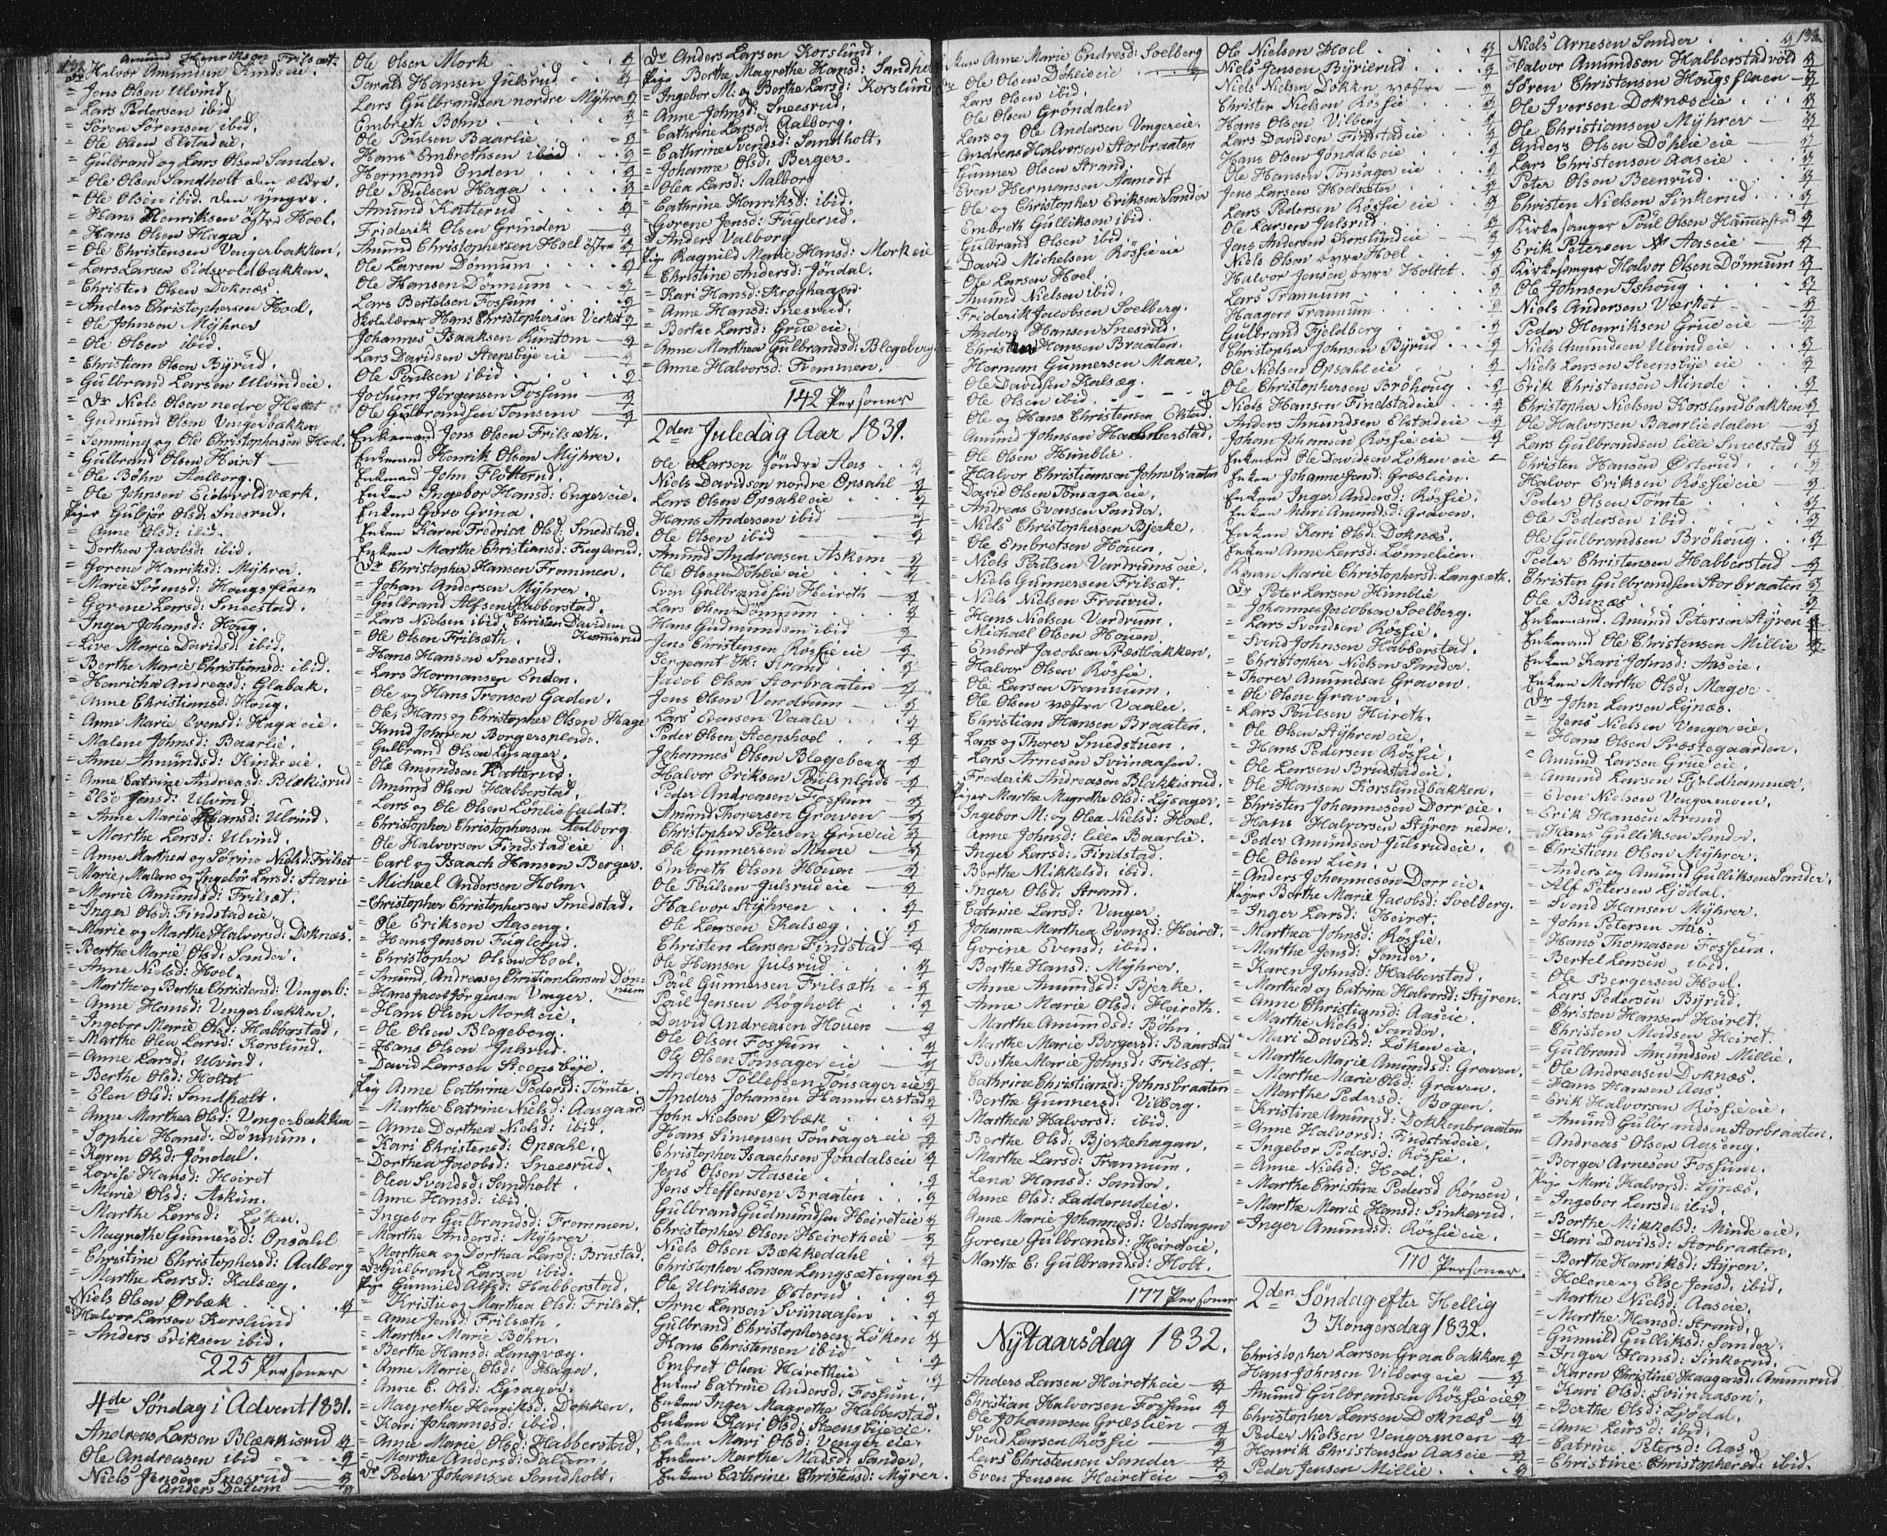 Amund Henriksen Frilsæt
Dr Halvor Amundsen Rindseie.
= Jens Olsen Ulvind.
= Lars Pedersen ibid
= Sören Sørensen ibid.
= Ole Olsen Elstadeie.
= Gulbrand og Lars Olsen Sander.
= Ole Olsen Sandholt den ældre.
= Ole Olsen ibid. den yngre.
= Hans Henriksen östre Hoel.
= Hans Olsen Haga.
= Ole Christensen Vengerbakken.
= Lars Larsen Eidsvoldbakken.
= Christen Olsen Doknæs.
= Anders Christophersen Hoel.
= Ole Johnsen Mÿhrer
= Ole Olsen ibid.
= Christian Olsen Bÿrüd.
= Gulbrand Larsen Ulvindeie.
= Dr Niels Olsen nedre Holtet
= Gudmund Olsen Vengerbakken
= Temming og Ole Christophersen Hoel.
= Gulbrand Olsen Heiret
= Ole Böhn Aalborg.
= Ole Johnsen Eidsvoldværk.
Piger Gubjør Olsd. Snesrud.
= Anne Olsd: ibid.
= Dorthea Jacobsd: ibid.
= Gorene Hanriksd: Mÿhrer.
= Marie Sörensd: Hougsfloen
= Gorene Larsd: Sneestad.
= Inger Johansd: Houg.
= Live Marie Davidsd: ibid.
= Berthe Marie Christiansd: ibid.
= Henriche Andreasd: Glabak.
= Anne Christiansd: Houg.
= Anne Marie Evensd: Hagaeie.
= Malene Johnsd: Baarlie.
= Anne Amundsd: Rindseie.
= Anne Catrine Andreasd: Blækisrud
= Else Jensd: Ulvind.
= Anne Marie Hansd: Ulvind.
= Marthe Larsd: Ulvind.
= Anne Marthea og Sørine Nielsd: Frilset
= Marie, Malene og Ingebör Larsd: Starie
= Marie Amundsd: Frilsæt.
= Inger Olsd: Findstadeie.
= Marie og Marthe Halvorsd: Doknæs.
= Berthe Marie Olsd: Sander.
= Anne Nielsd: Hoel.
= Marthe og Berthe Christensd: Vengerb:
= Anne Hansd: Vengerbakken.
= Ingebor Marie Olsd: Habberstad.
= Marthe Olea Larsd: Korslund.
= Anne Larsd: Ulvind.
= Berthe Olsd: Holtet
= Elen Olsd: Sandholt.
= Anne Marthea Olsd: Vengerbakken
= Sophie Hansd: Dönnum.
= Karen Olsd: Jöndal.
= Lovise Hansd: Heiret
= Marie Olsd: Askim.
= Marthe Larsd: Löken.
= Magrethe Gunnersd: Opsahl
= Christine Christophersd: Aalborg
= Marthe Larsd: Kalsæg.
Niels Olsen Ørbæk . . . . g
Dr Halvor Larsen Korslund
= Anders Eriksen ibid.
225 Personer
4de Söndag i Advent 1831.
Andreas Larsen Blækkisrud g
Ole Andreasen ibid . . g
Niels Jensen Snesrud — g
Anders Dalum — g
Ole Olsen Mork . . . . g
Tarald Hansen Julsrud . . g
Lars Gulbrandsen nordre Mÿhrer g
Embreth Bohn . . . . g
Ole Poulsen Baarlie . . . g
Hans Embrethsen ibid . . g
Hermand Enden . . . . g
Ole Poulsen Haga . . . g
Amund Katterud . . . g
Friderik Olsen Grinden — g
Amund Christophersen Hoel östre g
Ole Larsen Dönnum . . . g
Ole Hansen Dönnum . . . g
Lars Bertelsen Fossum . . g
Skolelærer Hans Christophersen Verket g
Johannes Isaaksen Rüstom — g
Lars Davidsen Steensbÿeeie — g
Ole Poulsen ibid . . . . g
Jochum Jörgensen Fossum — g
Ole Gulbrandsen Tomsem — g
Enkemand Jens Olsen Frilsæth.
Enkemand Henrik Olsen Mÿhrer.
Enkemand John Flotterud.
Enken Ingebor Hansd: Engereie.
Enken Goro Grina.
Enken Karen Fredrica Olsd. Smedstad.
Enken Marthe Christiansd: Fuglerud.
Dr Christopher Hansen Frammen.
= Johan Andersen Mÿhrer.
= Gulbrand Alfsen Habberstad.
= Lars Nielsen ibid. Christen Davidsen
= Ole Olsen Frilsæth. Honnisrud
= Hans Hansen Snesrud.
= Lars Hermansen Enden.
= Ole og Hans Tronsen Gaden.
= Ole, Hans og Christopher Olsen Hage
= Knud Johnsen Borgersplads.
= Gulbrand Olsen Lÿsager.
= Ole Amundsen Katterud.
= Amund Olsen Habberstad.
= Lars og Ole Olsen Lönliefaldet.
= Christopher Christophersen Aalborg
= Ole Halvorsen Findstadeie
= Carl og Isaach Hansen Berger.
= Michael Andersen Holm.
= Christopher Christophersen Smedstad.
= Ole Eriksen Aaseng.
= Hans Jensen Fuglerud.
= Christopher Olsen Hoel.
= Amund, Andreas og Christian Larsen Dönnum
= Hans Jacob Jörgensen Venger.
= Hans Olsen Morkeie.
= Ole Olsen Blegeborg.
= Hans Olsen Julsrud.
= David Larsen Steensbÿe.
Pig Anne Cathrine Pedersd: Tömte.
= Marthe Catrine Nielsd: Aasgaard
= Anne Dorthea Nielsd: ibid.
= Kari Christensd: Opsahl.
= Dorthea Jacobsd: Sneesrud.
= Olea Svendsd: Sandholt.
= Anne Hansd: ibid
= Ingebor Gulbrandsd: Frommen.
= Marthe Andersd: Mÿhrer
= Marthea og Dorthea Larsd: Brustad.
Dr Gulbrand Larsen ibid.
Pig Gunnild Alfsd: Habberstad.
= Kristie og Marthea Olsd: Frilsæt.
= Anne Jensd: Frilsæth.
= Marthe Marie Bohn.
= Berthe Hansd: Langvæg.
= Anne Marie Olsd: Hager.
= Anne E. Olsd: Lÿsager.
= Magrethe Henriksd: Dokken.
= Kari Johannesd: ibid.
= Anne Marie Olsd: Habberstad.
= Marthe Andersd: Dalum.
Dr Peder Johansen Sandholt.
Dr Anders Larsen Korslund.
Pige Berthe Magrethe Hansd: Sandholt
= Ingebor M: og Berthe Larsd: Korslund
= Anne Johnsd: Sneesrud.
= Cathrine Larsd: Aalborg.
= Cathrine Svendsd: Sandholt.
= Johanne Olsd: Berger.
= Olea Larsd: Aalborg
= Cathrine Henriksd: ibid.
= Gorene Jensd: Fuglerud.
Dr Anders Valborg
Pig Ragnild Marie Hansd: Morkeie
= Christine Andersd: Jöndal.
= Kari Hansd: Kroghagen
= Anne Hansd: Snesrud.
= Berthe Larsd: Grüeeie.
= Anne Marthea Gulbrandsd: Blegeberg
= Anne Halvorsd: Frommen.
142 Personer
2den Juledag Aar 1831.
Ole Larsen söndre Aas . . g
Niels Davidsen nordre Opsahl g
Lars Olsen Opsahleie . . g
Hans Andersen ibid — g
Ole Olsen ibid — g
Amund Andreasen Askim — g
Ole Olsen Döhlieeie — g
Even Gulbrandsen Heireth — g
Lars Olsen Dönnum — g
Hans Gudmundsen ibid g
Jens Christensen Rösfieeie — g
Sergeant M: Strand . . g
Jacob Olsen Storbraaten — g
Jens Olsen Verdrum — g
Lars Evensen Vaaler . . g
Peder Olsen Steepshoel . . g
Johannes Olsen Blegeberg — g
Halvor Eriksen Poulsplads — g
Peder Andreasen Fossum — g
Amund Thorersen Graven — g
Christopher Petersen Grüeeie — g
Ole Gunnersen Maae — g
Embreth Olsen Houen — g
Ole Poulsen Julsrudeie — g
Halvor Stÿhren . . . g
Ole Larsen Kalsæg . . g
Christen Larsen Findstad — g
Ole Hansen Julsrud . . g
Poul Gunnersen Frilsæth — g
Poul Jensen Rögholt . . g
David Andreasen Houen — g
Ole Olsen Fossum . . g
Ole Olsen Tönsagereie — g
Anders Tollefsen Tonsagereie g
Anders Johansen Hammerstad g
John Nielsen Ørbæk . . g
Hans Simensen Tonsagereie g
Christopher Isaachsen Jöndalseie g
Jens Olsen Aaseie . . . g
Jens Steffensen Braaten . . g
Gulbrand Gudmundsen Heireteie g
Christopher Olsen Heiretheie — g
Niels Olsen Bækkedahl . . g
Christopher Larsen Langsætengen g
Ole Ulriksen Esterud . . g
Arne Larsen Sviinaasen . g
Gulbrand Christophersen Löken g
Hans Christensen ibid . . g
Embret Olsen Heiretheie . g
Enken Catrine Andersd: Fossum.
Enken Inger Magrethe Habberstad.
Enken Kari Olsd: Steensbÿeeie.
Enken Mari Olsd: Vengereie.
Enken Marthe Madsd: Sander.
Enken Cathrine Christensd: Mÿrer.
Enken Anne Marie Endresd: Soelberg
Dr Ole Olsen Dokeieie g
Lars Olsen ibid.
= Ole Olsen Gröndalen
= Lars og Ole Andersen Vengereie.
= Andreas Halvorsen Storbraaten
= Gunner Olsen Strand.
= Even Hermansen Aamodt
= Ole og Christopher Eriksen Sander
= Embreth Gulliksen ibid.
= Gulbrand Olsen ibid.
= David Michelsen Rösfieeie
= Ole Larsen Hoel.
= Amund Nielsen ibid.
= Friderik Jacobsen Soelberg.
= Anders Hansen Snesrud.
= Christian Hansen Braaten.
= Hermam Gunnersen Maae.
= Ole Davidsen Kalsæg.
= Ole Olsen ibid. - - - g
= Ole og Hans Christensen Elstad.
= Amund Johnsen Habberstad.
= Ole Olsen Himblie.
= Halvor Christiansen Johnsbraaten
= David Olsen Tonsagaeie.
= Andreas Evensen Sander.
= Niels Christophersen Bjerke.
= Ole Embretsen Houen.
= Niels Poulsen Vardrumseie.
= Niels Gunnersen Frilsæt.
= Niels Nielsen Frousrud.
= Hans Nielsen Vardrum.
= Michael Olsen Houen.
= Embret Jacobsen Præstbakken.
= Halvor Olsen Rösfie.
= Ole Larsen Tramnum.
= Ole Olsen væstre Vaaler.
= Christian Hansen Braaten.
= Lars og Thorer Smedstuen.
= Lars Arnesen Sviinaasen.
= Frederik Andreasen Blækkisrud.
Piger Marthe Magrethe Olsd: Lÿsager.
Ingebor M: og Olea Nielsd: Hoel.
Anne Johnsd: lille Baarlie.
Inger Larsd: Findstad.
Berthe Mikkelsd: ibid.
= Inger Olsd: Strand.
Catrine Larsd: Venger.
Johanne Marthea Evensd: Heiret.
Gorine Evensd: ibid.
Berthe Hansd: Mÿhrer.
Anne Amundsd: Bjerke.
Anne Marie Olsd: Heireth.
Marthe Amundsd: Böhn.
Marthe Marie Borgersd: Baarstad
Berthe Marie Johnsd: Frilsæt.
Cathrine Christiansd: Johnsbraaten
Berthe Gunnersd: Vilberg.
Marthea Halvorsd: ibid.
Berthe Olsd: Bjerkehagan.
Marthe Larsd: Trannum.
Lena Hansd: Sander.
Anne Olsd: Ladderudeie.
Anne Marie Johannesd: Vestengen
Gorene Gulbrandsd: Heireteie.
Marthe E. Gulbrandsd: Holt.
177 Personer
Nÿtaarsdag 1832.
Anders Larsen Heiretheie — g
Christian Halvorsen Fossum g
Ole Johannesen Græslien — g
Svend Larsen Rösfie — g
Lars Christensen Sander — g
Even Jensen Heireteie — g
Ole Nielsen Hoel . . . g
Niels Jensen Bÿrierud . . g
Niels Nielsen Dokken væstre — g
Christen Nielsen Rösfie . . g
Hans Olsen Vilberg . . g
Lars Davidsen Findstadeie . g
Hans Olsen Jöndalseie . . g
Ole Hansen Tonsagereie . g
Jens Larsen Hoelsæter . . g
Lars Pedersen Rösfieeie . . g
Ole Larsen Julsrud . . g
Jens Andersen Korslundeie — g
Niels Olsen övre Hoel . . g
Halvor Jensen övre Holtet . g
Lars Trannum . . . g
Haagen Trannum . . g
Gulbrand Fjeldberg . . g
Christopher Johnsen Bÿrud . g
Ole Nielsen Opsahleie . . g
Ole Christophersen Bröhoug . g
Niels Hansen Findstadeie . g
Anders Amundsen Elstadeie — g
Johan Johansen Rösfieeie — g
Enkemand Ole Davidsen Lökeneie
Enken Johanne Jensd: Græslien.
Enken Inger Andersd: Rösfie.
Enken Mari Amundsd: Graven.
Enken Kari Olsd: Doknæs.
Enken Anne Larsd: Lømelien.
Konen Marie Christophersd: Langsæth.
Dr Peter Larsen Himblie
= Johannes Jacobsen Soelberg.
= Lars Svendsen Rösfie.
= Svend Johnsen Habberstad.
= Christopher Nielsen Sander.
= Thorer Amundsen Graven.
= Ole Olsen Graven.
= Lars Poulsen Heireth.
= Ole Olsen Stÿhreneie.
= Hans Pedersen Rösfie.
= Ole Larsen Brustadeie.
= Ole Hansen Korslundbakken.
= Christen Johannesen Dorreie.
= Hans Halvorsen Stÿren nedre.
= Peder Amundsen Julsrudeie.
= Ole Olsen Lien.
= Anders Johannesen Dorreie.
Piger Berthe Marie Jacobsd: Soelberg.
= Inger Larsd: Heiret.
= Marthea Johnsd: Rösfie.
= Marthe Jensd: Sander.
= Karen Johnsd: Habberstad.
= Marthea og Catrine Halvorsd: Stÿren.
= Anne Christiansd: Aaseie.
= Marthe Nielsd: Sander.
= Mari Davidsd: Lökeneie.
= Marthe Marie Amundsd: Graven.
= Marthe Marie Olsd: Graven.
= Marthe Pedersd: Bogen.
= Kristine Amundsd: Dokkenbraaten
= Anne Halvorsd: Findstadeie.
= Ingebor Pedersd: Rösfie.
= Anne Nielsd: Hoel.
= Marthe Christine Pedersd Rönsen.
= Marthe Marie Hansd: Sinkerud.
= Inger Amundsd: Rösfieeie.
170 Personer.
2den Söndag efter Hellig
3 Kongersdag 1832.
Christopher Larsen Graabakken g
Hans Johnsen Vilbergeie — g
Amund Gulbrandsen Rösfieeie g
Christopher Larsen Doknæs — g
Peder Nielsen Vengermoen — g
Henrik Christensen Aaseie — g
Peder Jensen Millie . . g
Niels Arnesen Sander . . . g
Halvor Amundsen Habberstadvold g
Sören Christensen Hougsfloen — g
Ole Iversen Doknæseie . . g
Ole Christiansen Mÿhrer — g
Anders Olsen Döhlieeie — g
Lars Christensen Aaseie . . g
Peter Olsen Beenrud . . g
Christen Nielsen Sinkerud . . g
Kirkesanger Poul Olsen Hammerstad g
Erik Petersen Aaseie . . g
Kirkesanger Halvor Olsen Dönnum g
Ole Johnsen Ishoug . . . g
Niels Andersen Værket — g
Peder Henriksen Grueeie — g
Niels Amundsen Ulvindeie — g
Niels Larsen Steensbÿeeie — g
Erik Christensen Minde . . g
Christopher Nielsen Korslundbakken g
Ole Halvorsen Baarliedalen — g
Lars Gulbrandsen lille Sneestad g
Christen Hansen Østerud . . g
Halvor Eriksen Rösfieeie — g
Peder Olsen Tömte . . . g
Ole Pedersen ibid . . . g
Ole Gulbrandsen Bröhoug . . g
Peder Christensen Habberstad — g
Christen Gulbrandsen Storbraaten g
Ole Bunæs . . . . g
Enkemand Amund Petersen Stÿren g
Enkemand Ole Christensen Millie g
Enken Kari Johnsd: Aaseie.
Enken Marthe Olsd: Mager
Dr John Larsen Lÿnæs.
= Jens Nielsen Vengereie.
= Hans Olsen Prostegaarden.
= Amund Larsen Grueeie.
= Amund Larsen Fjeldhammer.
= Even Nielsen Vengermoen.
= Erik Hansen Strand
= Hans Gulliksen Sander.
= Christian Olsen Mÿhrer.
= Anders og Amund Gulliksen Sander.
= Alf Petersen Ljödal.
= Svend Hansen Mÿhrer.
= John Petersen Aas.
= Hans Thomasen Fossum.
= Bertel Larsen ibid.
= Ole Bergersen Hoel.
= Lars Pedersen Bÿrud.
= Christen Hansen Heiret.
= Christen Madsen Heiret.
= Gulbrand Amundsen Millie.
= Ole Andreasen Doknæs.
= Hans Hansen Aas
= Erik Halvorsen Rösfieeie.
= Amund Gulbrandsen Storbraaten.
= Andreas Olsen Aaseng.
= Borger Arnesen Fossum.
Pige Mari Halvorsd: Lÿnæs.
= Ingebor Larsd: ibid.
= Berthe Mikkelsd: Mindeeie.
= Kari Davidsd: Storbraaten.
= Berthe Henriksd: Stÿren.
= Helene og Else Jensd: ibid.
= Marthe Nielsd: Aaseie.
= Marthe Hansd: Strand.
= Gunnild Gulliksd: Sander.
= Inger Hansd: Sinkerud.
= Karen Christine Haagensd: Amunrud
= Kari Olsd: Sviinaasen.
= Berthe Olsd: Ljödal.
= Anne Larsd: ibid.
= Catrine Petersd: Aas.
= Christine Christophersd: ibid.